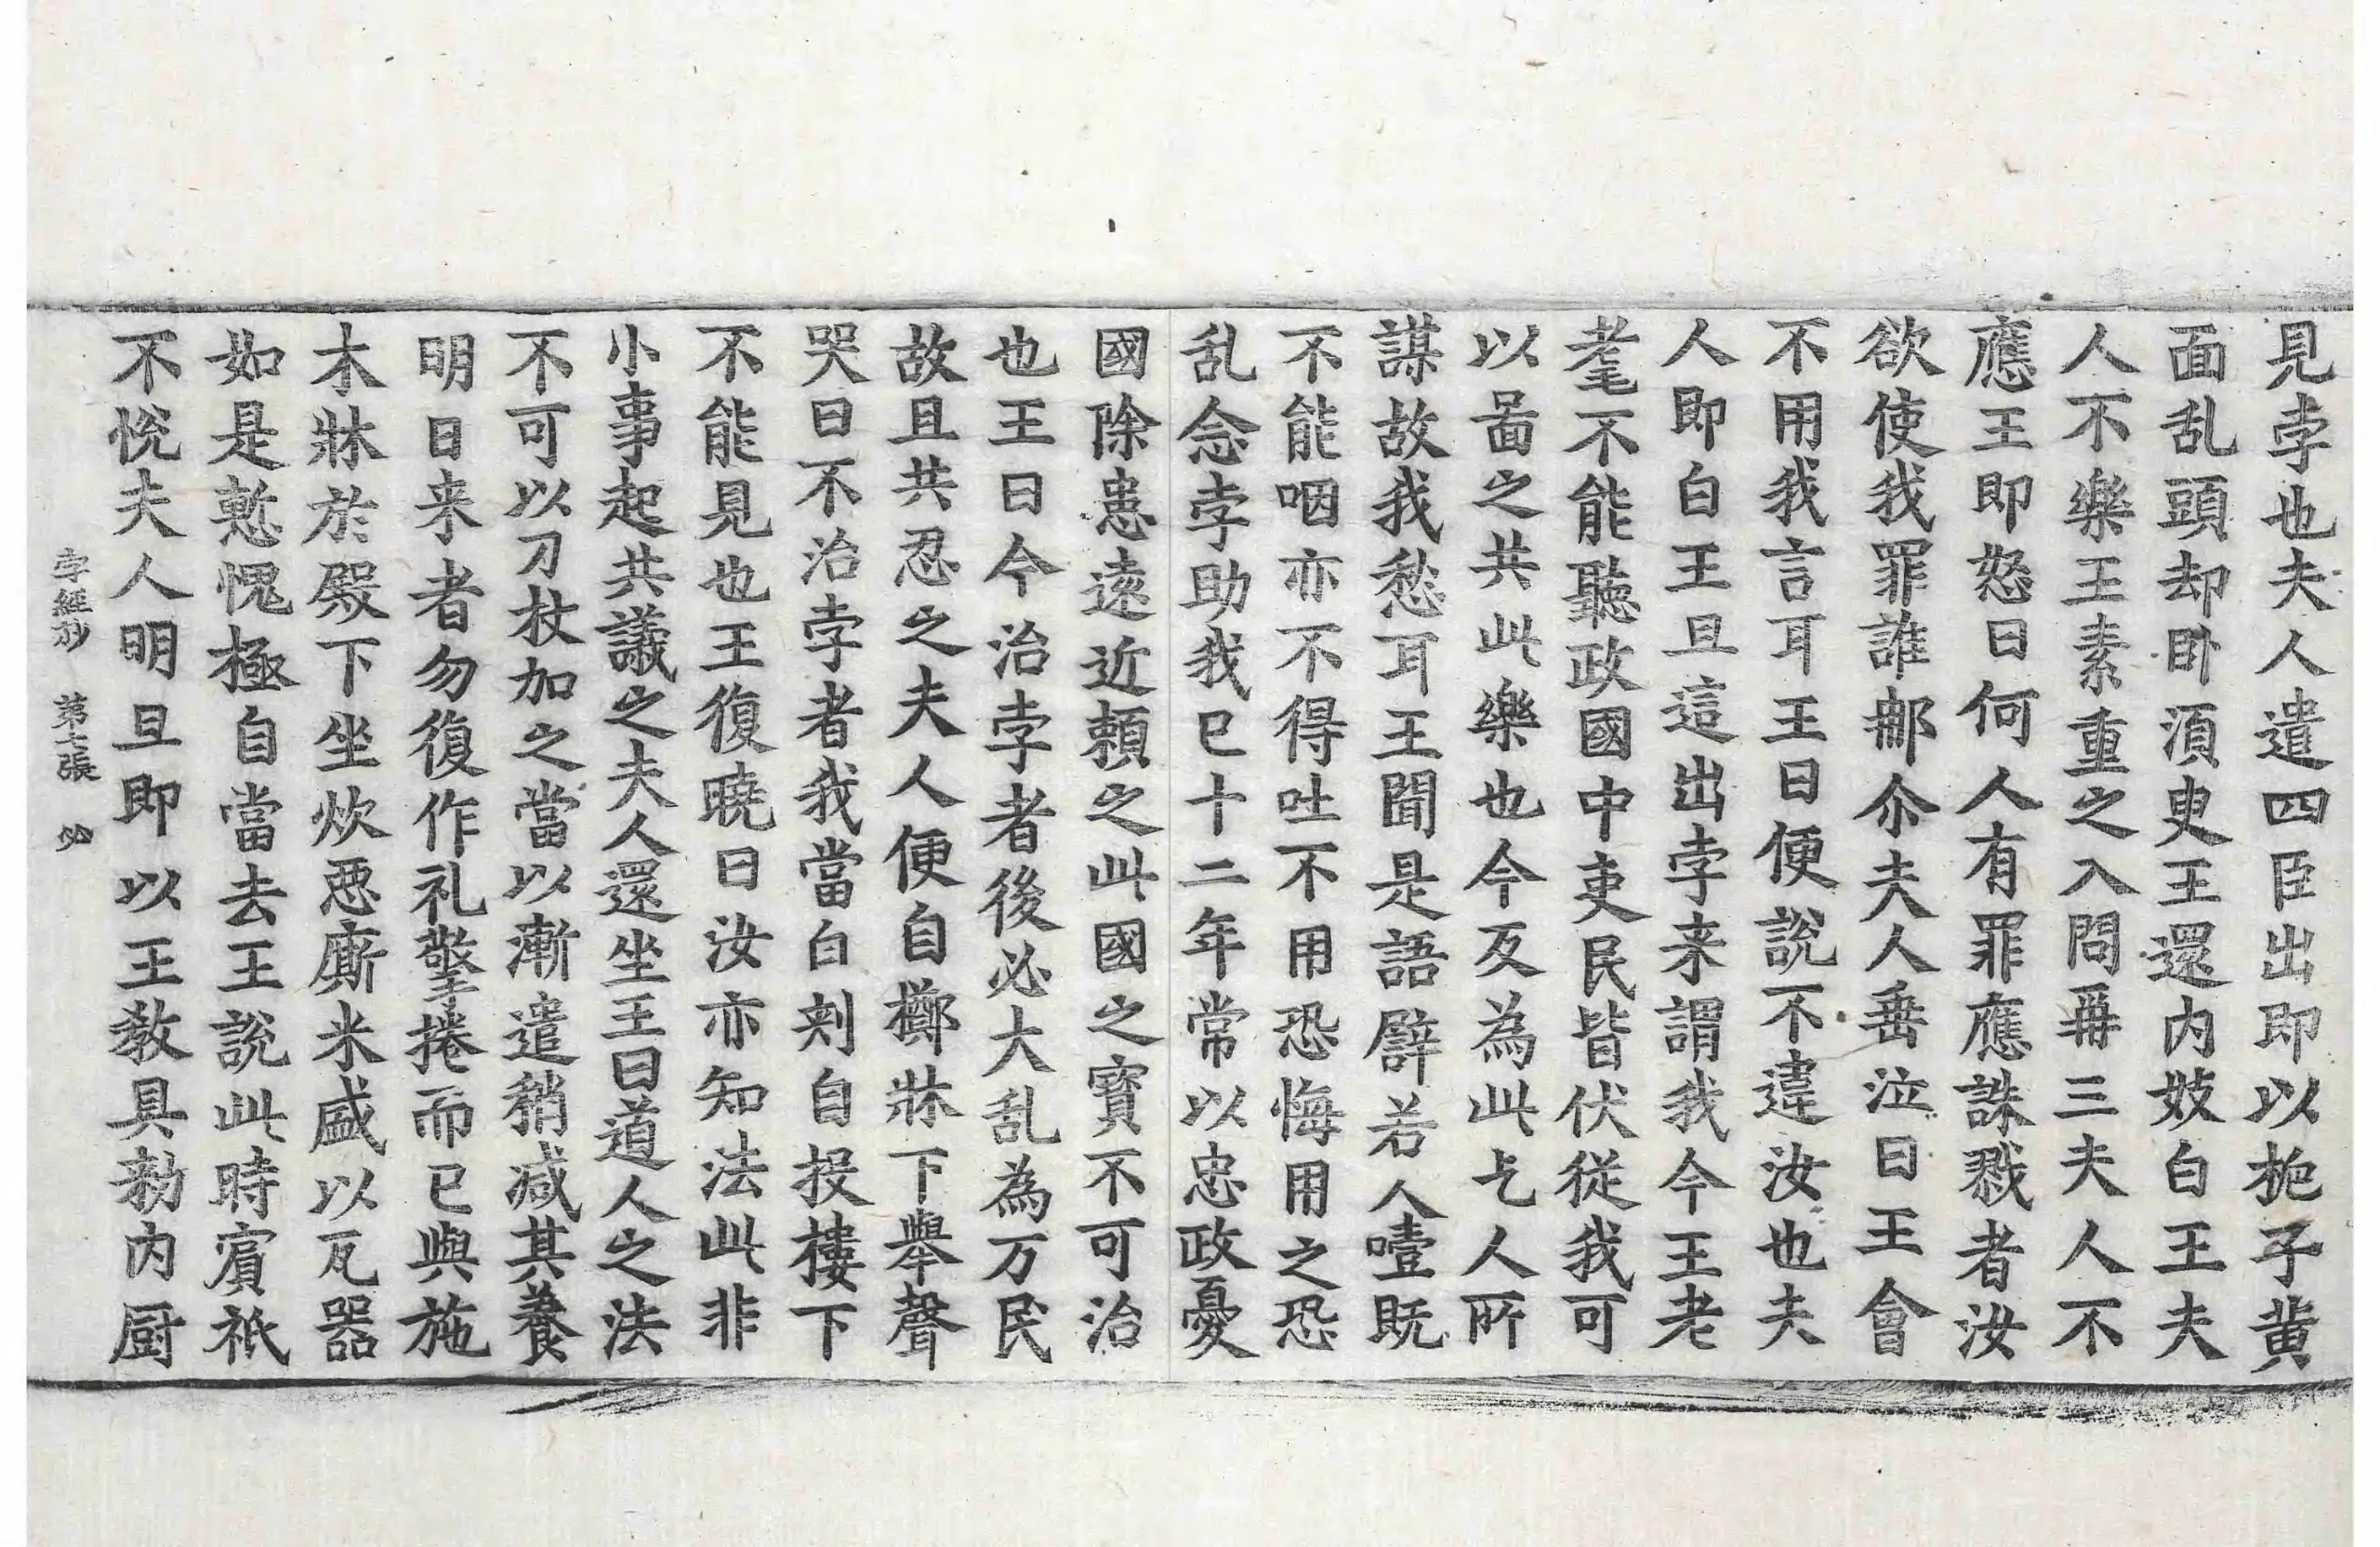 見孛也夫人遣四臣出即以栀子黄
面乱頭却卧湏臾王還内妓白王夫
人不樂王素重之入問再三夫人不
應王即怒曰何人有罪應誅戮者汝
欲使我罪誰耶尒夫人垂泣曰王會
不用我言耳王曰便說不違汝也夫
人即白王旦這出孛来謂我今王老
耄不能聽政國中吏民皆伏從我可
以啚之共此樂也今反為此乞人所
謀故我愁耳王聞是語譬若人噎既
不能咽亦不得吐不用恐悔用之恐
乱念孛助我已十二年常以忠政憂
國除患遠近頼之此國之寶不可治
也王曰今治孛者後必大乱為万民
故且共忍之夫人便自擲牀下舉聲
哭曰不治孛者我當白刾自投樓下
不能見也王復曉曰汝亦知法此非
小事起共議之夫人還坐王曰道人之法
不可以刀杖加之當以漸遣稍减其養
明日来者勿復作礼擎捲而已與施
木牀於殿下坐炊惡廝米盛以瓦器
如是慙愧極自當去王說此時賔祇
不悅夫人明旦即以王敎具勑内厨
孛經抄 第七張